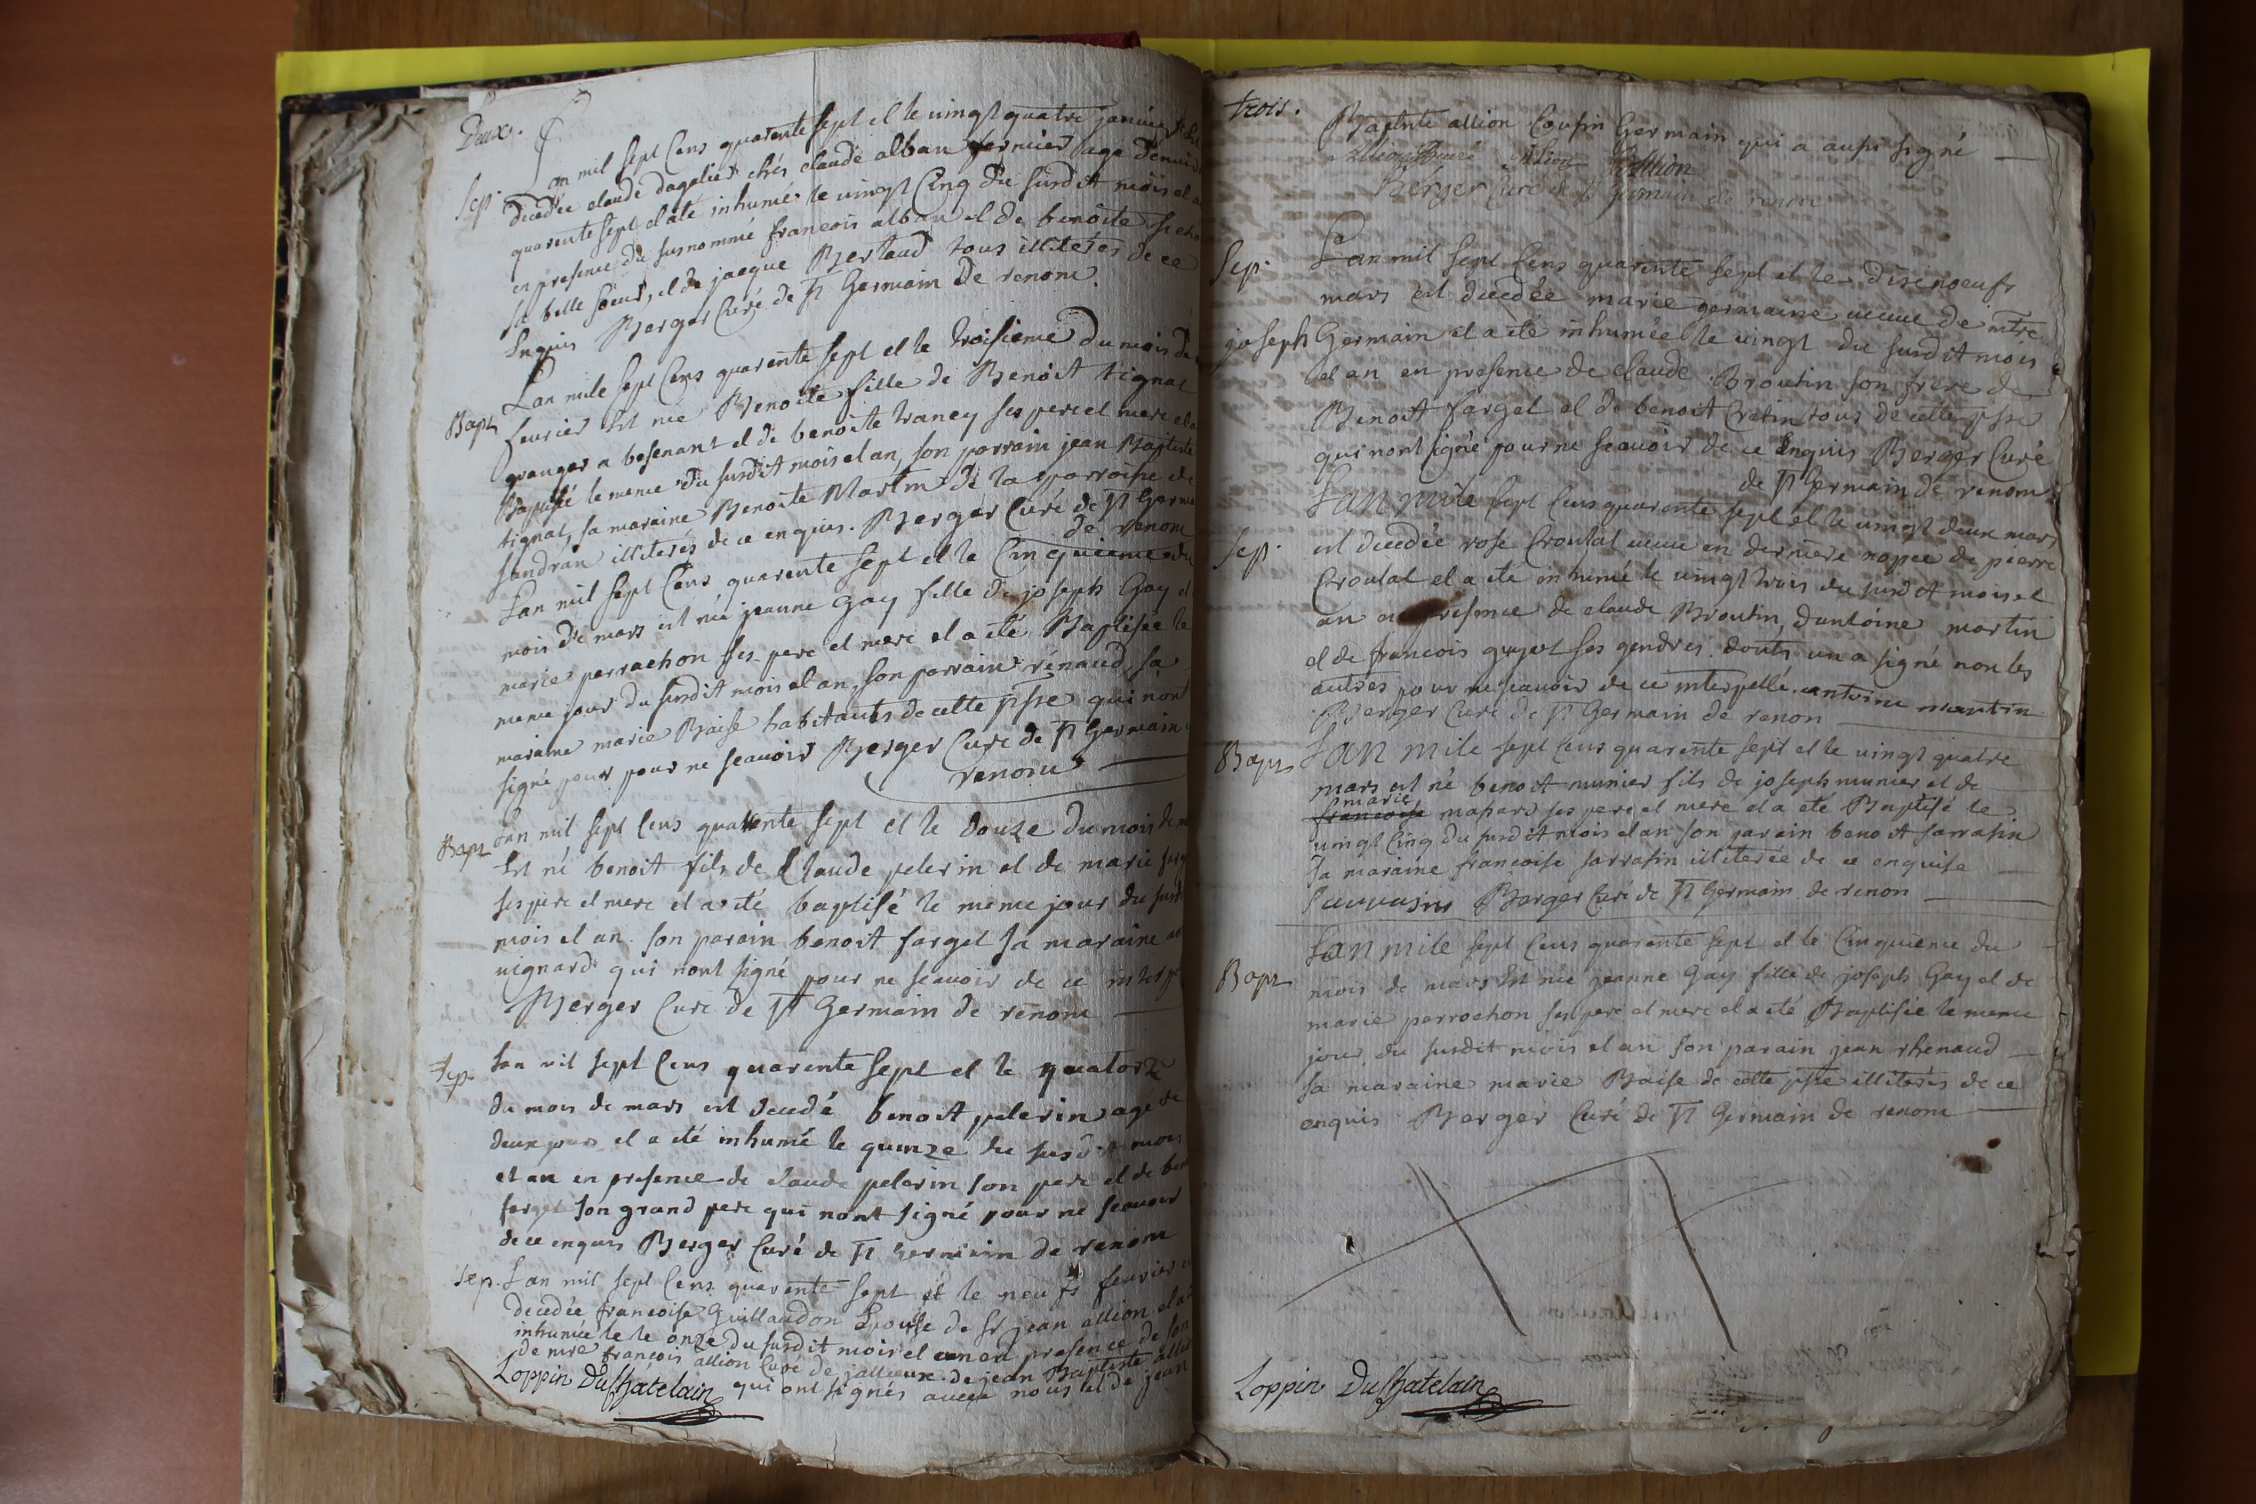 Deux.
Sep
Lan mil sept cens quarente sept et le vingt quatre janvier est
decedée claude dagalier chés claude alban fermier age denviron
quarente sept et a été inhumée le vingt cinq du susdit mois et a
en presence du susnommé francois alban et de benoite
sa belle soeur, et de jacque Bertaud tous illiterés de ce
Enquis Berger Curé de st Germain de renom.
Bapt
Lan mile sept cens quarente sept et le troisieme du mois de
fevrier est née Benoite fille de Benoit tignat
granger a besenant et de benoite traney ses pere et mere et a
Baptisé le meme du susdit mois et an, son parrain jean Baptiste
tignat, sa maraine Benoite Martin de la parroisse de
sandran illiterés de ce enquis. Berger Curé de st Germ
de renom
Lan mil sept cens quarente sept et le Cinquieme du
mois de mars est née jeanne Gay fille de joseph Gay et
marie perrachon ses pere et mere et a été Baptisée le
meme jour du susdit mois et an, son parrain rénaud, sa
maraine marie Baise habitants de cette psse qui nont
signé pour pour ne scavoir Berger Curé de st Germain
renom
Bapt
Lan mil sept cens quarente sept et le douze du mois de m
Est né benoit fils de Claude pelerin et de marie farg
ses pere et mere et a été baptisé le meme jour du susd
mois et an. son parain benoit farget sa maraine
vignard qui nont signé pour ne scavoir de ce interp
Berger Curé de st Germain de renom
Sep.
Lan mil sept cens quarente sept et le quatorze
du mois de mars est decedé benoit pelerin age de
deux jours et a été inhumé le quinze du susdit mois
et an en presence de claude pelerin son pere et de ben
farget son grand pere qui nont signé pour ne scavoir
de ce enquis Berger Curé de st Germain de renom
Sep.
Lan mil sept cens quarente sept et le neufs fevrier e
decedée francoise Guillaudon Epouse de Sr jean allion et a
inhumée le le onze du susdit mois et an en presence de son
de mre francois allion Curé de jallieux de jean Baptiste allio
qui ont signés avec nous et de jean
Loppin Duchatelain
trois.
Baptiste allion Cousin Germain qui a aussi signé
allion Curé allion allion
Berger Curé de st Germain de renom
Sep.
Lan mil sept cens quarente sept et le disenoeufs
mars est decedée marie germaine veuve de mtre
joseph Germain et a été inhumée le vingt du susdit mois
et an en presence de claude Broutin son frere de
Benoit farget et de benoit Cretin tous de cette psse
qui nont signé pour ne scavoir de ce enquis Berger Curé
de st Germain de renom
Sep.
Lan mile sept cens quarente sept et le vingt deux mars
est decedée rose Croulat veuve en derniere nopce de pierre
Croulat et a été inhumé le vingt trois du susdit mois et
an en presence de claude Broutin, dantoine martin
et de francois guyot ses gendres. donts un a signé non les
autres pour ne scavoir de ce interpellé. antoine martin
Berger Curé de st Germain de renon
Bapt
Lan mile sept cens quarente sept et le vingt quatre
mars est né benoit munier fils de joseph munier et de
marie
francoise mahard ses pere et mere et a été Baptisé le
vingt Cinq du susdit mois et an son parain benoit sarrasin
sa maraine francoise sarrasin illiterée de ce enquise
Sarrasin Berger Curé de st Germain de renon
Bapt
Lan mile sept cens quarente sept et le Cinquieme du
mois de mars est née jeanne Gay fille de joseph Gay et de
marie perrochon ses pere et mere et a été Baptisée le meme
jour du susdit mois et an son parain jean rhenaud
sa maraine marie Baise de cette psse illiterés de ce
enquis Berger Curé de st Germain de renom
Loppin Duchatelain